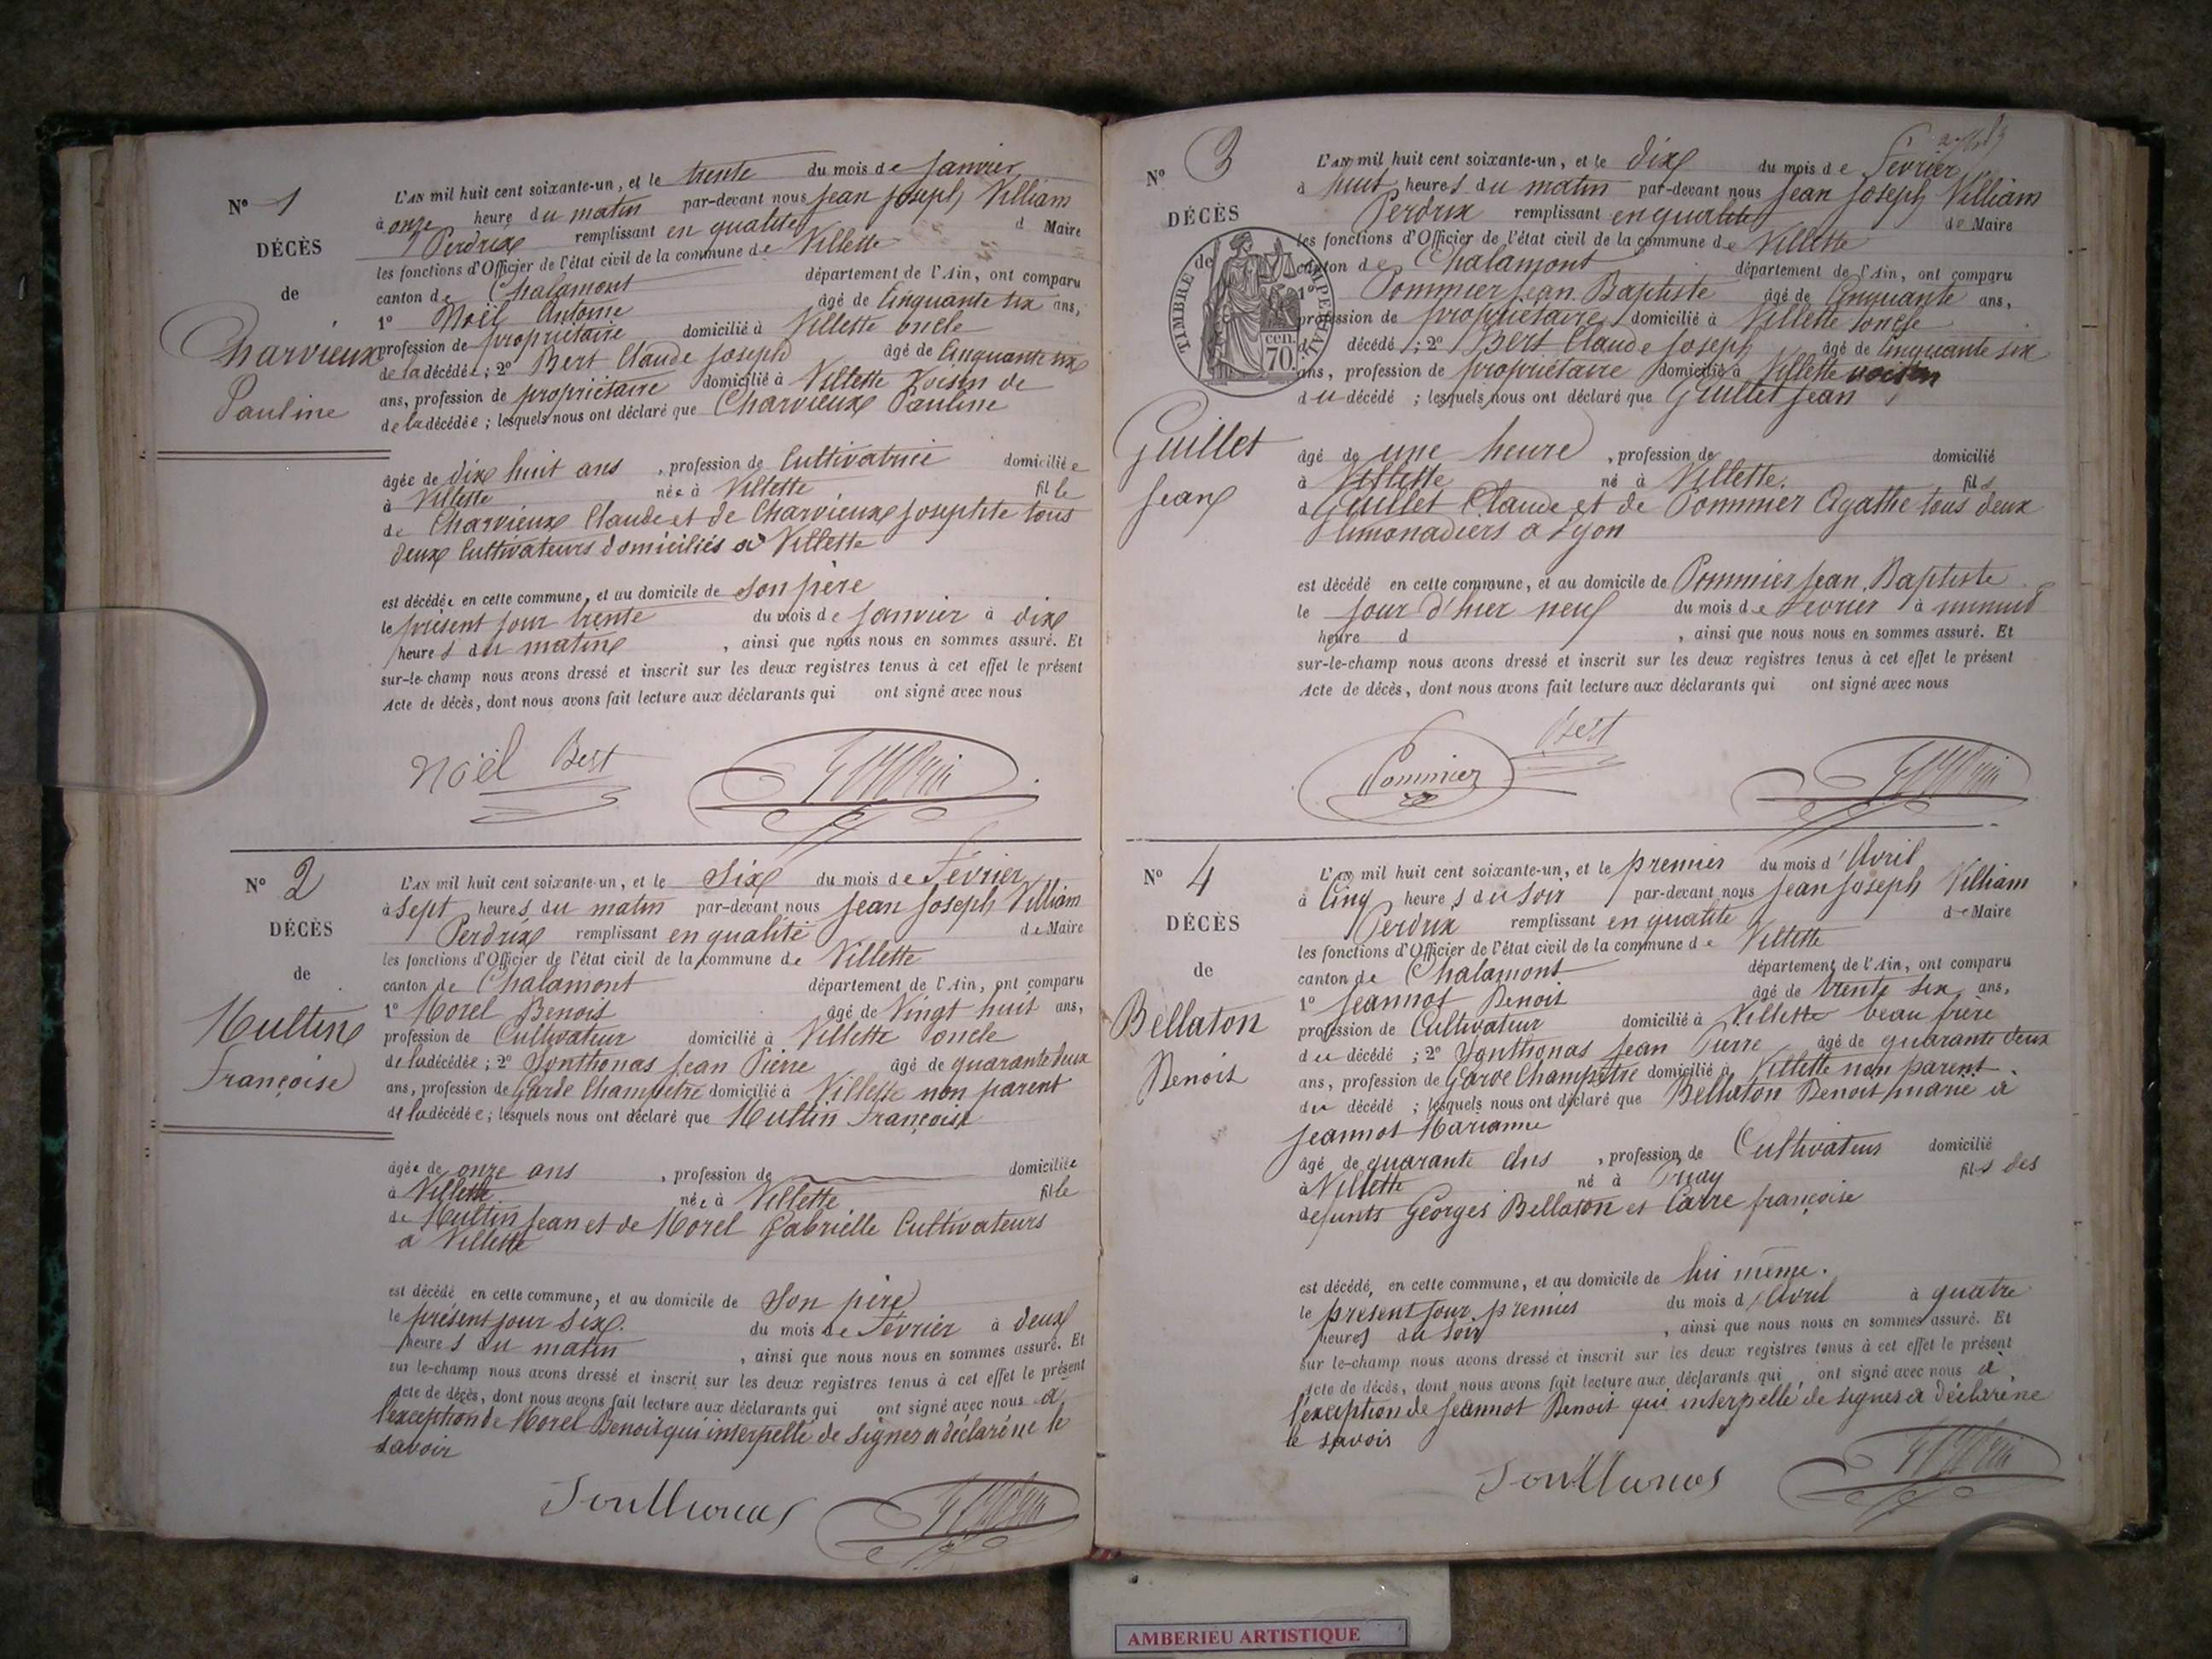 N° 1
DÉCÈS
de
Charvieux
Pauline
L'AN mil huit cent soixante-un, et le trente du mois de Janvier
à onze heure du matin par-devant nous Jean Joseph Villiam
Perdrix remplissant en qualité d Maire
les fonctions d'Officier de l'état civil de la commune de Villette
canton de Chalamont département de l'Ain, ont comparu
1° Noël Antoine âgé de Cinquante six ans,
profession de propriétaire domicilié à Villette oncle
de la décédée ; 2° Bert Claude Joseph âgé de Cinquante six
ans, profession de propriétaire domicilié à Villette Voisin de
de la décédée ; lesquels nous ont déclaré que Charvieux Pauline
âgée de dix huit ans , profession de Cultivatrice domiciliée
à Villette née à Villette fille
de Charvieux Claude et de Charvieux Josephte tous
deux Cultivateurs domiciliés à Villette
est décédée en cette commune, et au domicile de son père
le présent jour trente du mois de Janvier à dix
heures du matin , ainsi que nous nous en sommes assuré. Et
sur-le-champ nous avons dressé et inscrit sur les deux registres tenus à cet effet le présent
Acte de décès, dont nous avons fait lecture aux déclarants qui ont signé avec nous
Noël Bert
N° 2
DÉCÈS
de
Multin
Françoise
L'AN mil huit cent soixante-un, et le Six du mois de Février
à sept heures du matin par-devant nous Jean Joseph Villiam
Perdrix remplissant en qualité de Maire
les fonctions d'Officier de l'état civil de la commune de Villette
canton de Chalamont département de l'Ain, ont comparu
1° Morel Benoit âgé de Vingt huit ans,
profession de Cultivateur domicilié à Villette oncle
de la décédée ; 2° Jonthonas Jean Pierre âgé de quarante deux
ans, profession de Garde Champêtre domicilié à Villette non parent
de la décédée ; lesquels nous ont déclaré que Multin Françoise
âgée de onze ans , profession de domiciliée
à Villette née à Villette fille
de Multin Jean et de Morel Gabrielle Cultivateurs
à Villette
est décédé en cette commune, et au domicile de Son père
le présent jour Six. du mois de Février à deux
heures du matin , ainsi que nous nous en sommes assuré. Et
sur le-champ nous avons dressé et inscrit sur les deux registres tenus à cet effet le présent
Acte de décès, dont nous avons fait lecture aux déclarants qui ont signé avec nous à
l'exception de Morel Benoit qui interpellé de signer a déclaré ne le
savoir
Jonthonas
N° 3
DÉCÈS
de
TIMBRE IMPERIAL
cen.
70.
Guillet
Jean
L'AN mil huit cent soixante-un, et le dix du mois de Février
à huit heures du matin par-devant nous Jean Joseph Villiam
Perdrix remplissant en qualité de Maire
les fonctions d'Officier de l'état civil de la commune de Villette
canton de Chalamont département de l'Ain, ont comparu
1° Pommier Jean Baptiste âgé de Cinquante ans,
profession de propriétaire domicilié à Villette loncle
d décédé ; 2° Bert Claude Joseph âgé de Cinquante six
ans, profession de propriétaire domicilié à Villette voisin
du décédé ; lesquels nous ont déclaré que Guillet Jean
âgé de une heure , profession de domicilié
à Villette né à Villette. fils
d Guillet Claude et de Pommier Agathe tous deux
limonadiers à Lyon
est décédé en cette commune, et au domicile de Pommier Jean Baptiste
le jour d'hier neuf du mois de Février à minuit
heure d , ainsi que nous nous en sommes assuré. Et
sur-le-champ nous avons dressé et inscrit sur les deux registres tenus à cet effet le présent
Acte de décès, dont nous avons fait lecture aux déclarants qui ont signé avec nous
Pommier Bert
N° 4
DÉCÈS
de
Bellaton
Benoit
L'AN mil huit cent soixante-un, et le premier du mois d'Avril
à Cinq heures du soir par-devant nous Jean Joseph Villiam
Perdrix remplissant en qualité de Maire
les fonctions d'Officier de l'état civil de la commune de Villette
canton de Chalamont département de l'Ain, ont comparu
1° Jeannot Benoit âgé de trente six ans,
profession de Cultivateur domicilié à Villette beau frère
du décédé ; 2° Jonthonas Jean Pierre âgé de quarante deux
ans, profession de Garde Champêtre domicilié à Villette non parent
du décédé ; lesquels nous ont déclaré que Bellaton Benoit marié à
Jeannot Marianne
âgé de quarante ans , profession de Cultivateur domicilié
à Villette né à Druay fils des
defunts Georges Bellaton et Carre françoise
est décédé, en cette commune, et au domicile de lui même.
le présent jour premier du mois d'Avril à quatre
heures du soir , ainsi que nous nous en sommes assuré. Et
sur le-champ nous avons dressé et inscrit sur les deux registres tenus à cet effet le présent
Acte de décès, dont nous avons fait lecture aux déclarants qui ont signé avec nous à
l'exception de Jeannot Benoit qui interpellé de signer a déclaré ne
le savoir
Jonthonas
AMBERIEU ARTISTIQUE